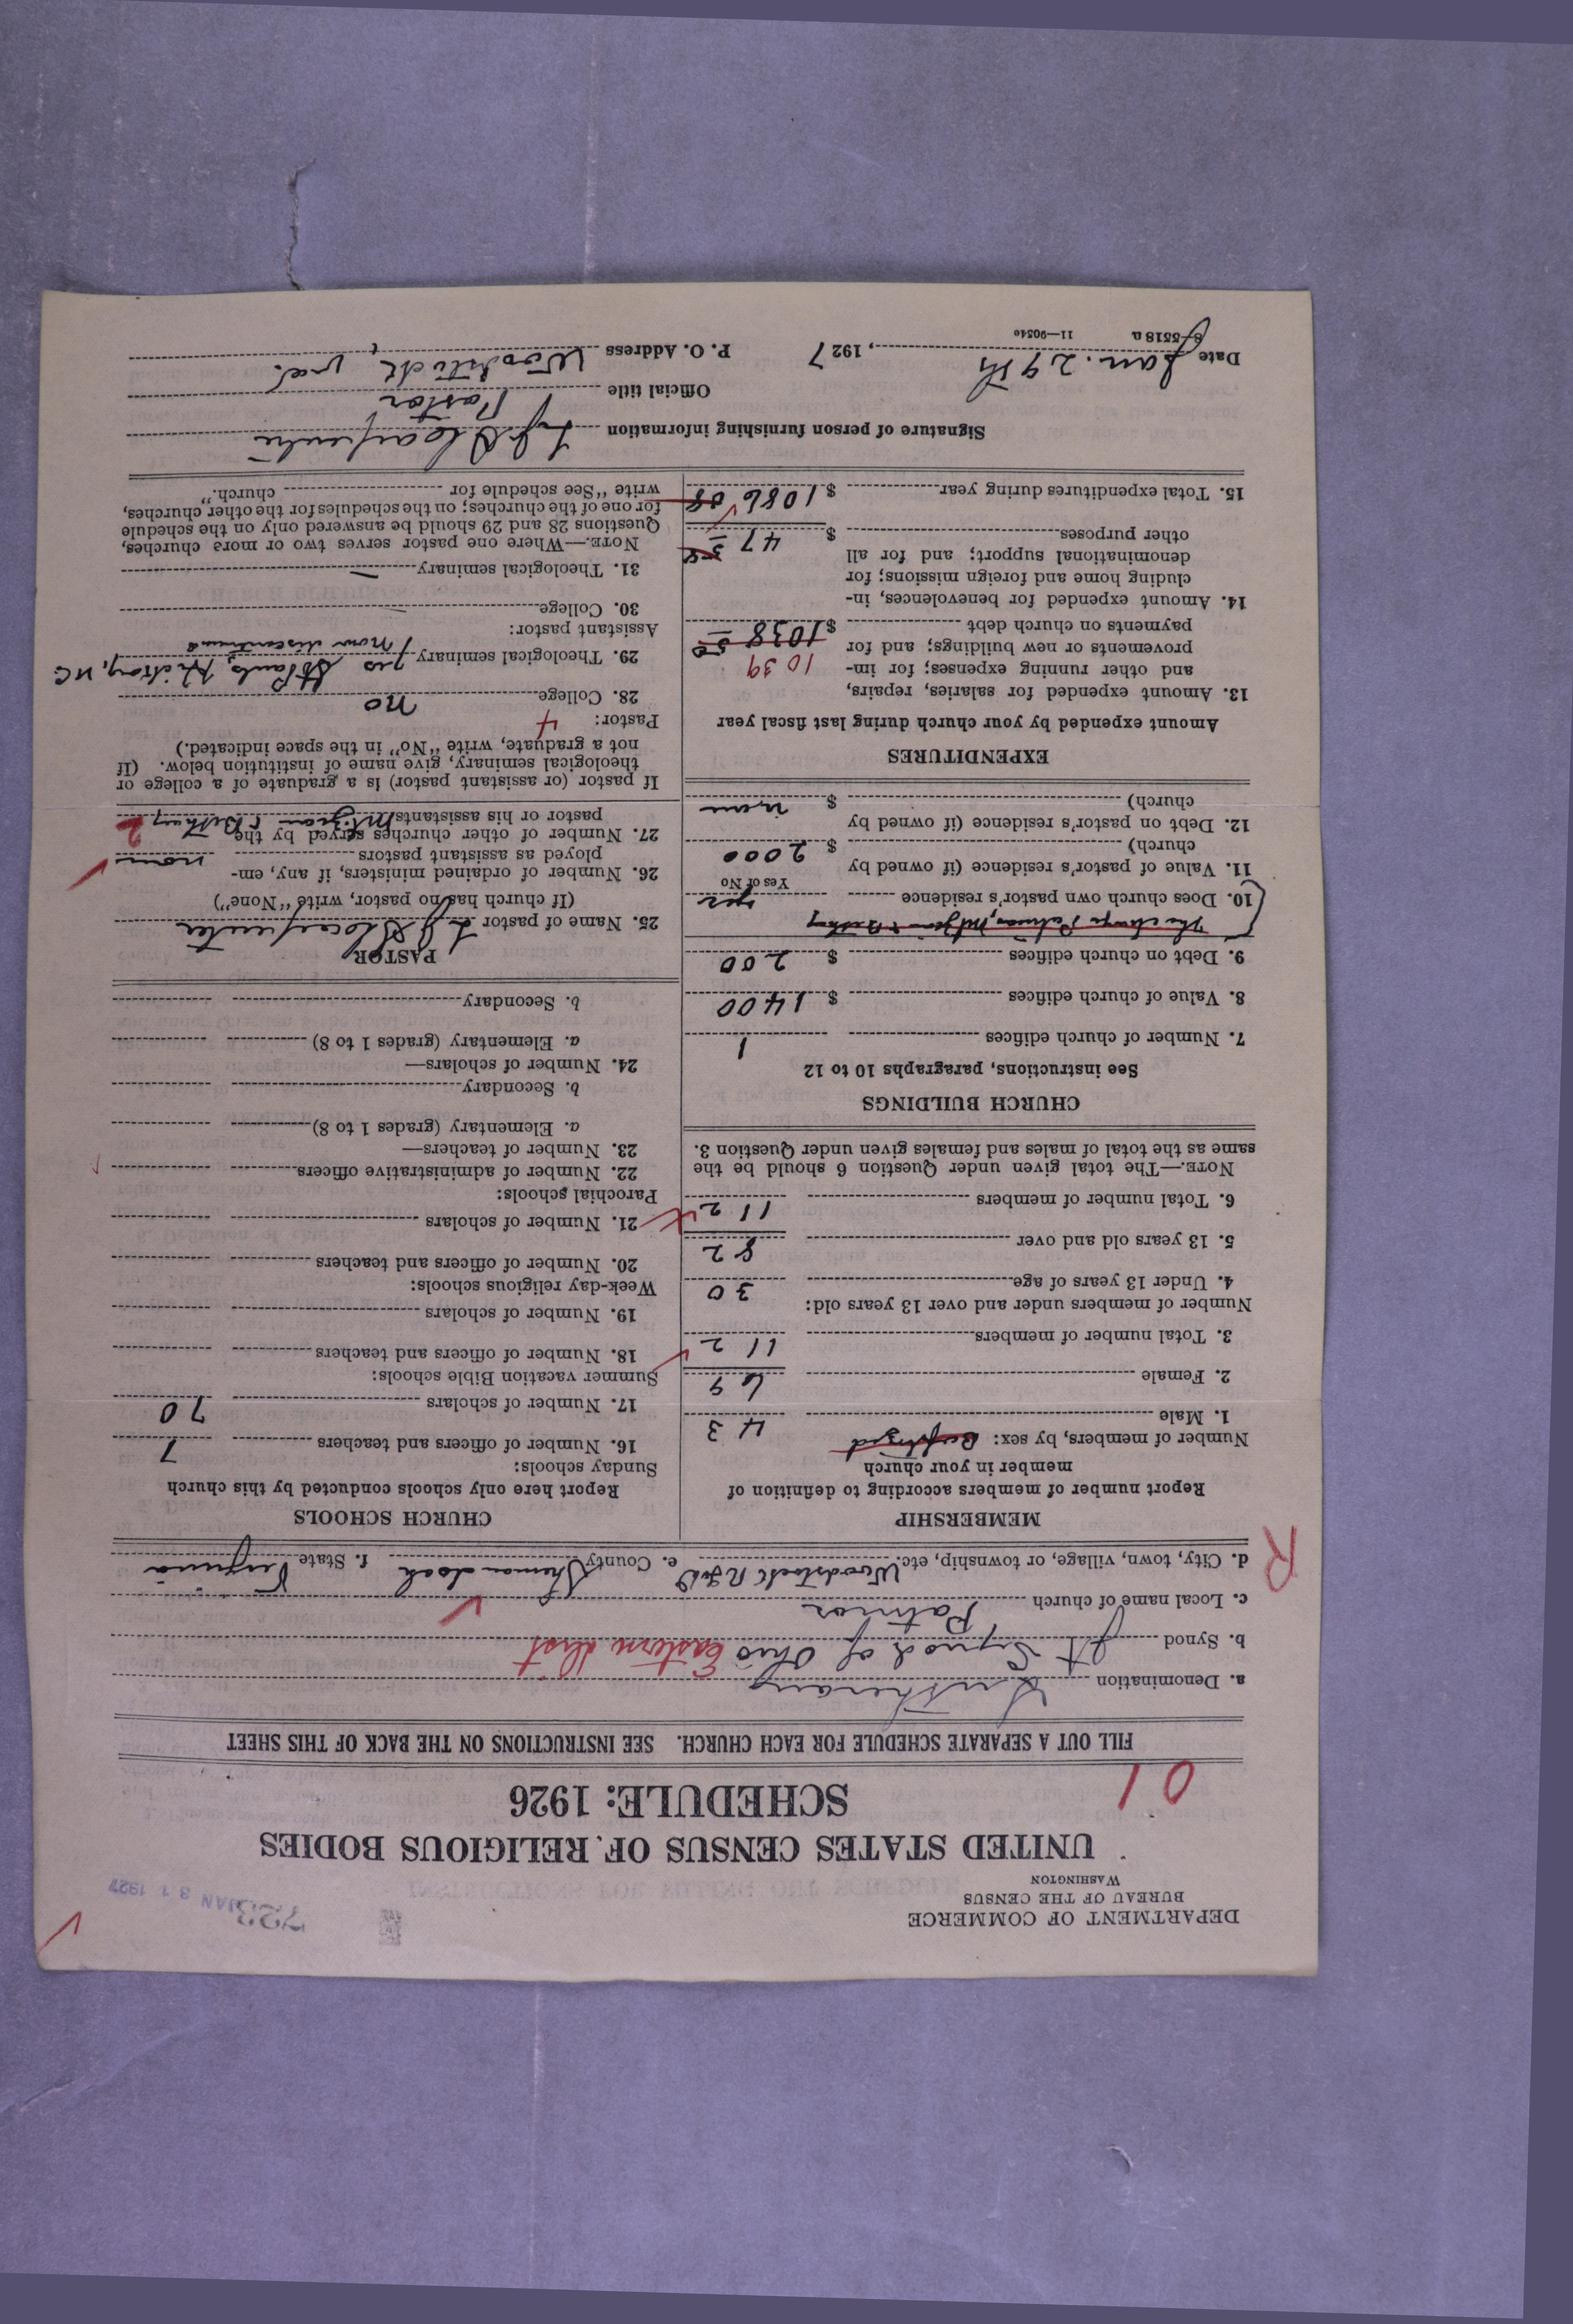 DEPARTMENT OF COMMERCE
BUREAU OF THE CENSUS
WASHINGTON
JAN 31 1927
UNITED STATES CENSUS OF RELIGIOUS BODIES
SCHEDULE: 1926
01
FILL OUT A SEPARATE SCHEDULE FOR EACH CHURCH. SEE INSTRUCTIONS ON THE BACK OF THIS SHEET
a. Denomination Lutheran
b. Synod Jt Synod of Ohio Eastern Dist
c. Local name of church Patmos
d. City, town, village, or township, etc. Woodstock R.F.D. e. County Shenandoah f. State Virginia
R
MEMBERSHIP
Report number of members according to definition of
member in your church
Number of members, by sex: Baptized
1. Male 43
2. Female 69
3. Total number of members 112
Number of members under and over 13 years old:
4. Under 13 years of age 30
5. 13 years old and over 82
6. Total number of members 112
NOTE.—The total given under Question 6 should be the
same as the total of males and females given under Question 3.
CHURCH BUILDINGS
See instructions, paragraphs 10 to 12
7. Number of church edifices 1
8. Value of church edifices $ 1400
9. Debt on church edifices $ 200
The charge Patmos, Mt Zion & Bethany
10. Does church own pastor's residence yes
Yes or No
11. Value of pastor's residence (if owned by
church) $ 2000
12. Debt on pastor's residence (if owned by
church) $ none
EXPENDITURES
Amount expended by your church during last fiscal year
13. Amount expended for salaries, repairs,
and other running expenses; for im- 1039
provements or new buildings; and for
payments on church debt $ 1038 50
14. Amount expended for benevolences, in-
cluding home and foreign missions; for
denominational support; and for all
other purposes $ 47 58
15. Total expenditures during year $ 1086 08
CHURCH SCHOOLS
Report here only schools conducted by this church
Sunday schools:
16. Number of officers and teachers 7
17. Number of scholars 70
Summer vacation Bible schools:
18. Number of officers and teachers
19. Number of scholars
Week-day religious schools:
20. Number of officers and teachers
21. Number of scholars
Parochial schools:
22. Number of administrative officers
23. Number of teachers—
a. Elementary (grades 1 to 8)
b. Secondary
24. Number of scholars—
a. Elementary (grades 1 to 8)
b. Secondary
PASTOR
25. Name of pastor
(If church has no pastor, write "None")
26. Number of ordained ministers, if any, em-
ployed as assistant pastors none
27. Number of other churches served by the
pastor or his assistants Mt Zion & Bethany 2
If pastor (or assistant pastor) is a graduate of a college or
theological seminary, give name of institution below. (If
not a graduate, write "No" in the space indicated.)
Pastor: 4
28. College no
29. Theological seminary yes St Pauls, Hickory, N.C.
now discontinued
Assistant pastor:
30. College —
31. Theological seminary —
NOTE.—Where one pastor serves two or more churches,
Questions 28 and 29 should be answered only on the schedule
for one of the churches; on the schedules for the other churches,
write "See schedule for church."
Signature of person furnishing information
Official title Pastor
Date Jan. 29th, 1927 P. O. Address Woodstock, Va.
8-5518 a 11—9054e